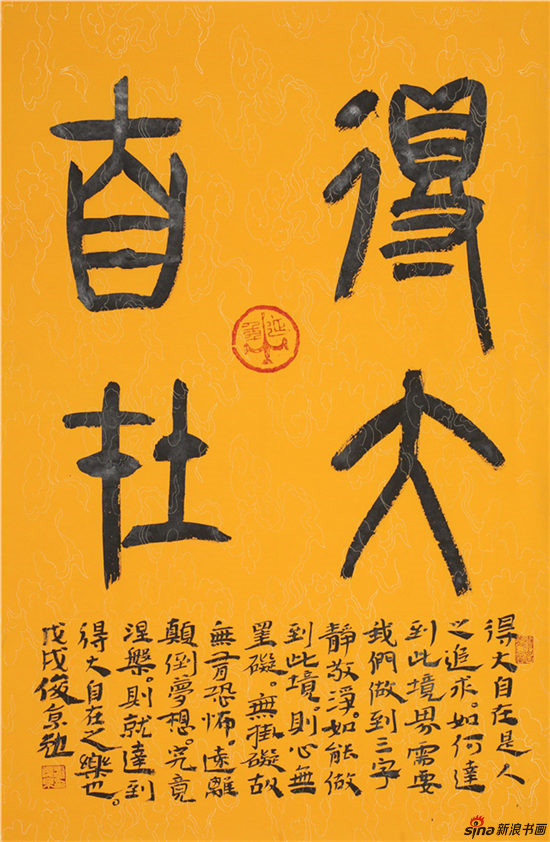 得大
自在
得大自在是人
之追求。如何達
到此境界需要
我們做到三字
靜敬淨。如能做
到此境則心無
罣礙。無掛礙故
無有恐怖。遠離
顛倒夢想。究竟
涅槃。則就達到
得大自在之樂也。
戊戌俊京
sina新浪书画